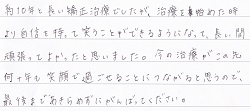 約10年と長い矯正治療でしたが、治療を始めた時
より自信を持って笑うことができるようになって、長い間
頑張ってよかったと思いました。今の治療がこの先
何十年も笑顔で過ごせることにつながると思うので、
最後まであきらめずにがんばってください。